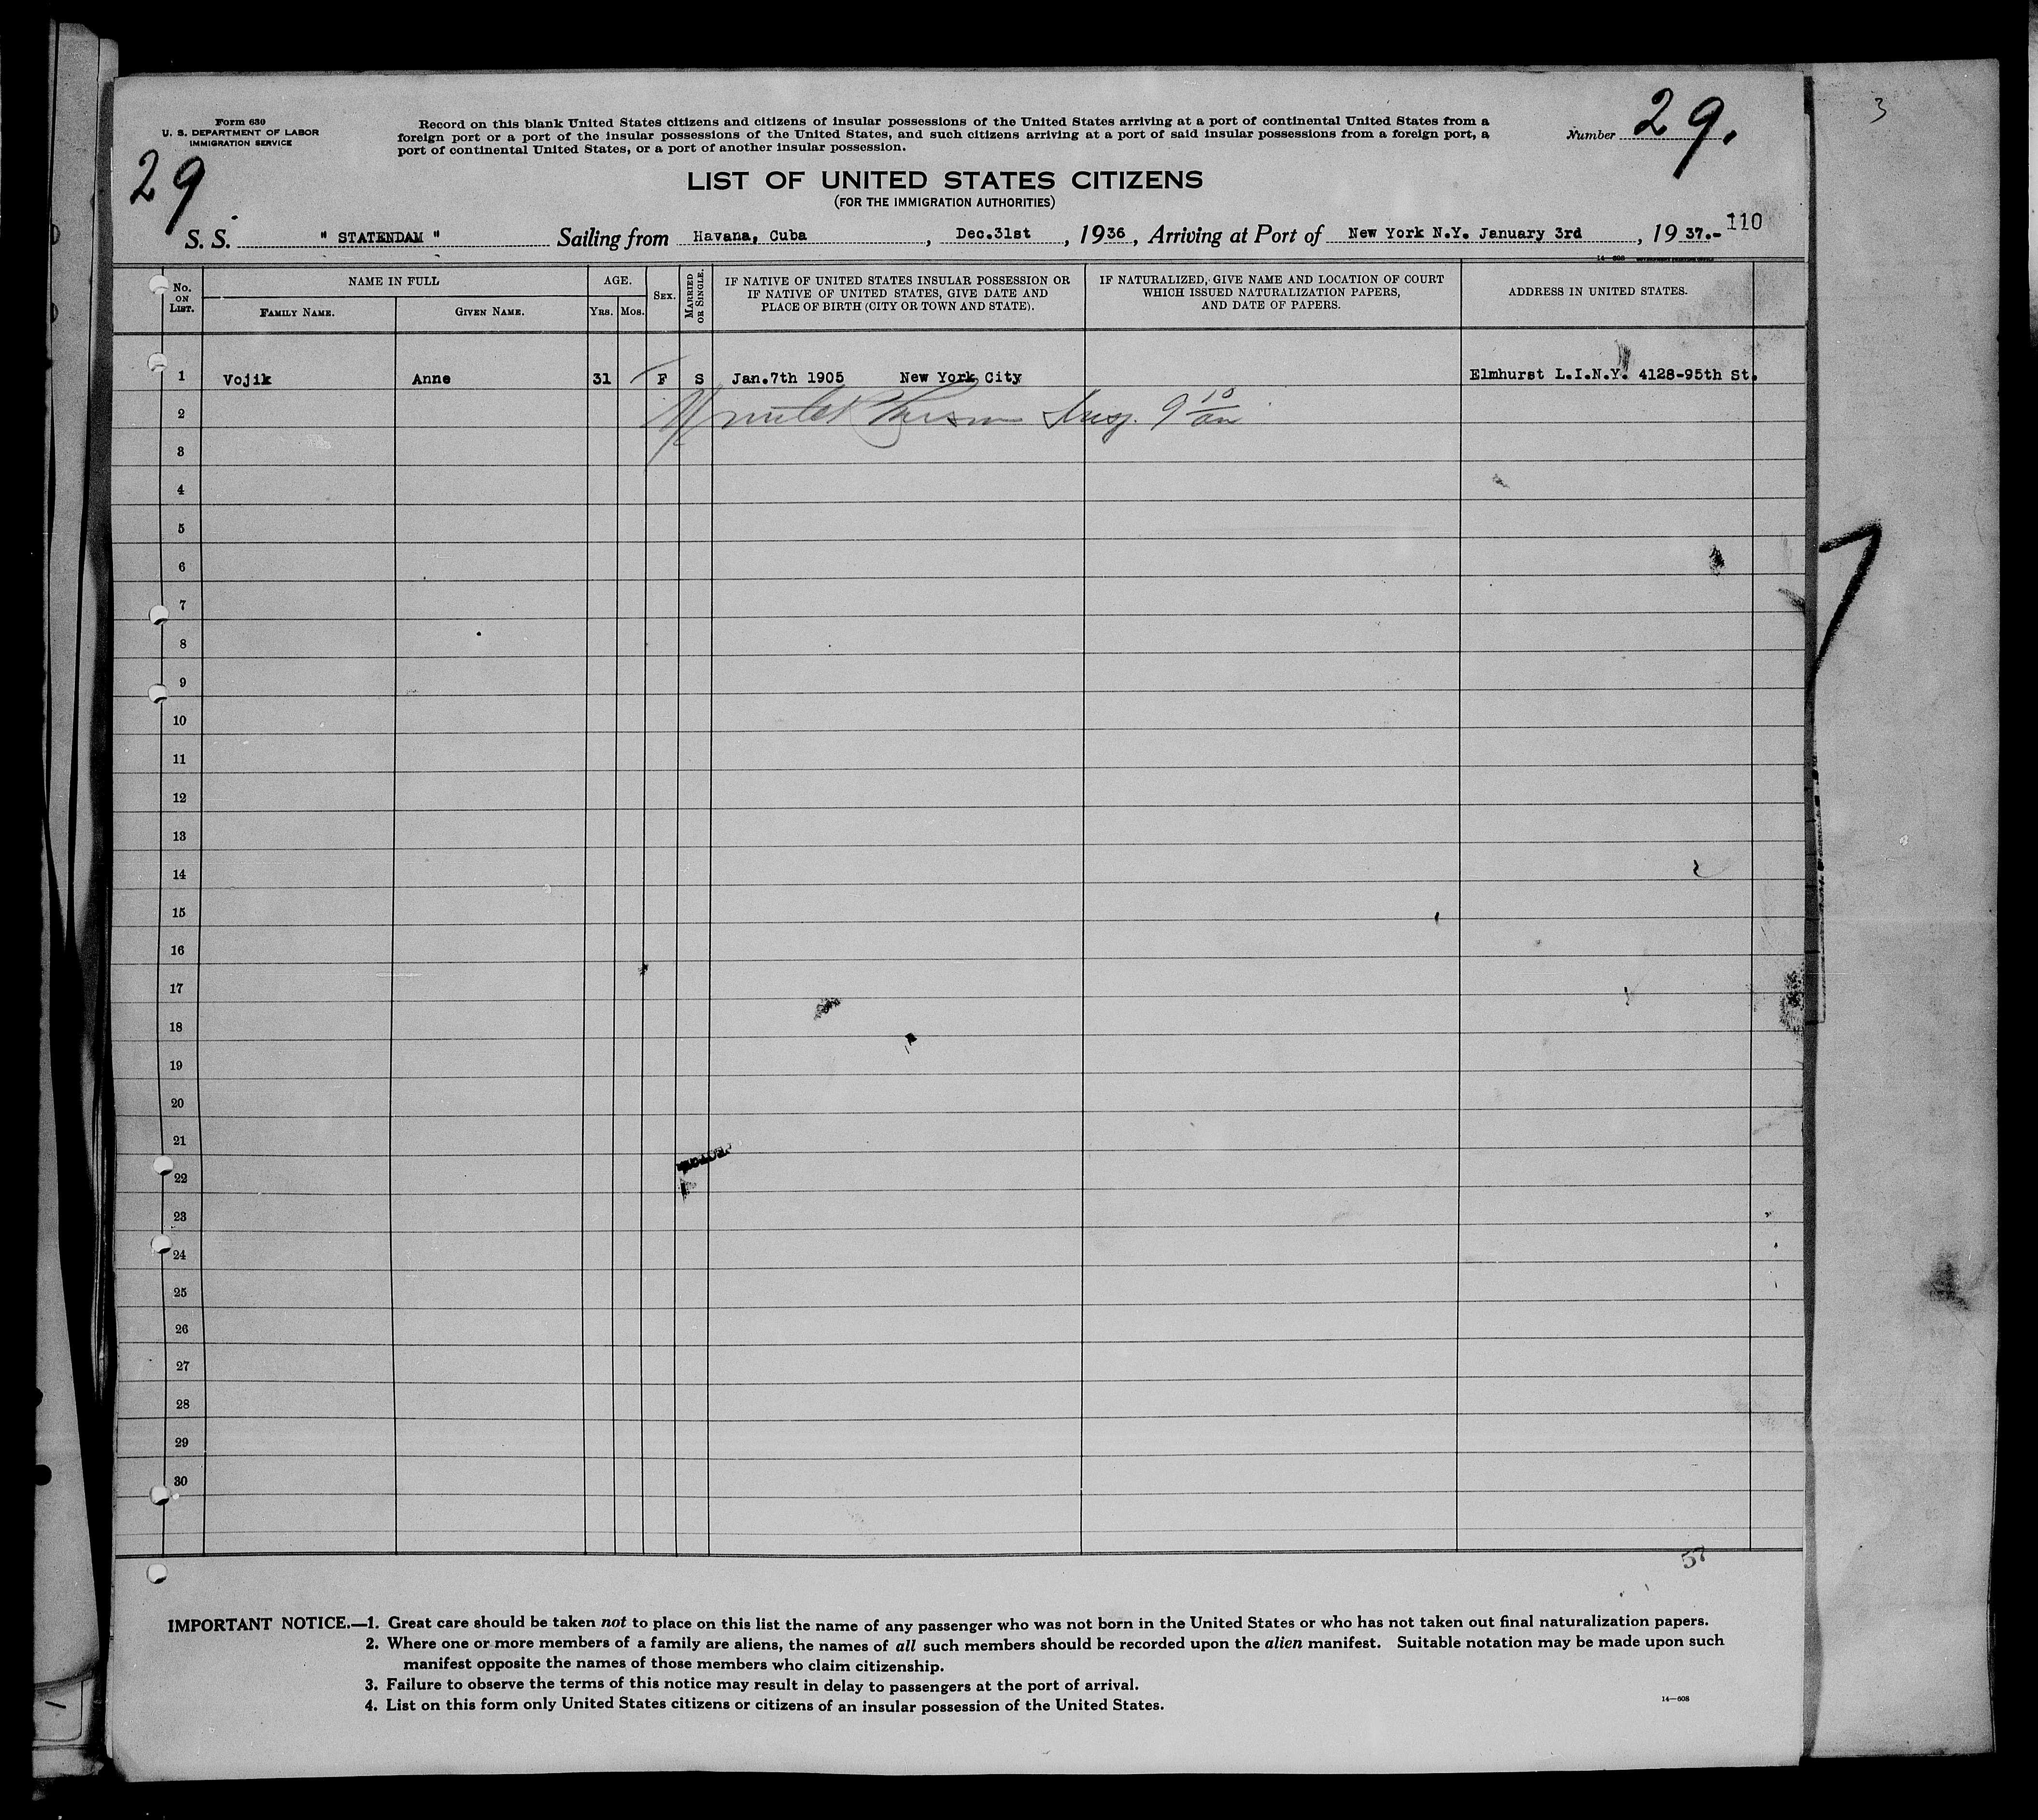 3
Form 630
U. S. DEPARTMENT OF LABOR
IMMIGRATION SERVICE
29
Record on this blank United States citizens and citizens of insular possessions of the United States arriving at a port of continental United States from a
foreign port or a port of the insular possessions of the United States, and such citizens arriving at a port of said insular possessions from a foreign port, a
port of continental United States, or a port of another insular possession.
Number 29.
LIST OF UNITED STATES CITIZENS
(FOR THE IMMIGRATION AUTHORITIES)
S. S. " STATENDAM " Sailing from Havana, Cuba , Dec.31st , 1936 , Arriving at Port of New York N.Y. January 3rd , 19 37.- 110
No. ON LIST. NAME IN FULL AGE. SEX. MARRIED OR SINGLE. IF NATIVE OF UNITED STATES INSULAR POSSESSION OR IF NATIVE OF UNITED STATES, GIVE DATE AND PLACE OF BIRTH (CITY OR TOWN AND STATE). IF NATURALIZED, GIVE NAME AND LOCATION OF COURT WHICH ISSUED NATURALIZATION PAPERS, AND DATE OF PAPERS. ADDRESS IN UNITED STATES.
FAMILY NAME. GIVEN NAME. YRS. MOS.
1 Vojik Anne 31 F S Jan.7th 1905 New York City Elmhurst L.I.N.Y. 4128-95th St.
2
3
4
5
6
7
8
9
10
11
12
13
14
15
16
17
18
19
20
21
22
23
24
25
26
27
28
29
30
57
IMPORTANT NOTICE.—1. Great care should be taken not to place on this list the name of any passenger who was not born in the United States or who has not taken out final naturalization papers.
2. Where one or more members of a family are aliens, the names of all such members should be recorded upon the alien manifest. Suitable notation may be made upon such
manifest opposite the names of those members who claim citizenship.
3. Failure to observe the terms of this notice may result in delay to passengers at the port of arrival.
4. List on this form only United States citizens or citizens of an insular possession of the United States.
14—608